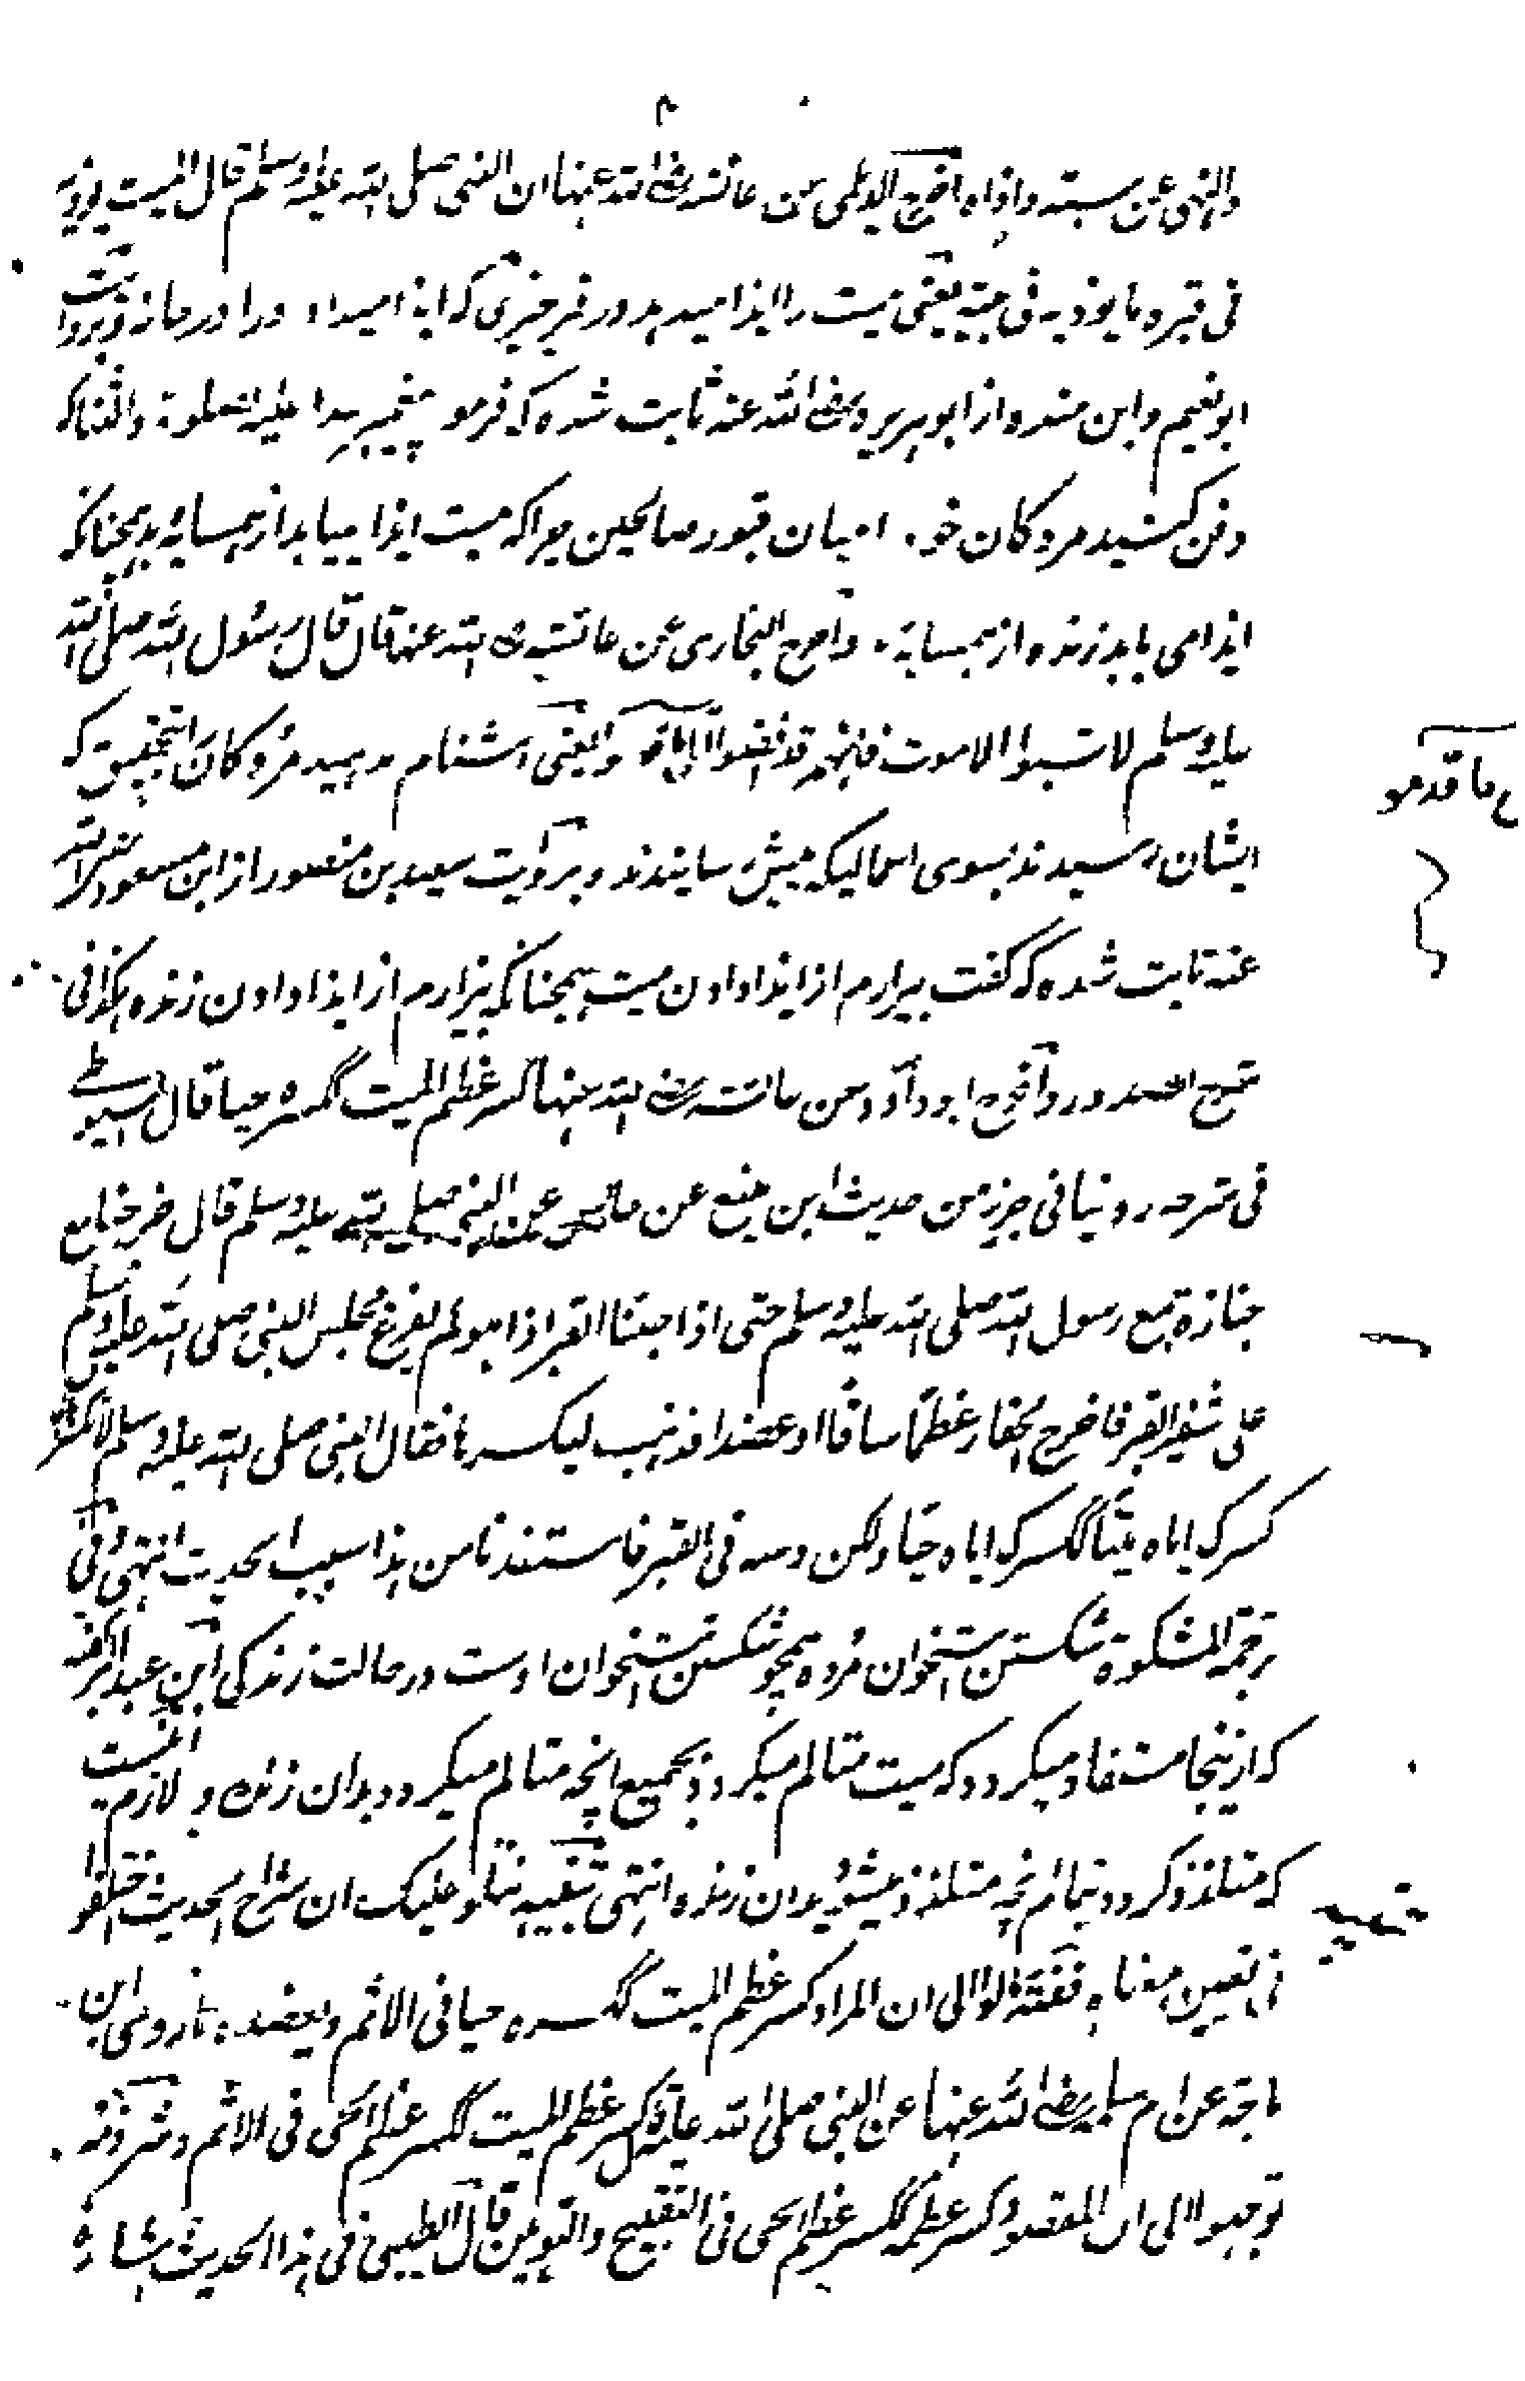 م
والنهی عن سبته واذاه اخرج الدیلمی عن عائشة رضی الله عنها ان النبی صلی الله علیه وسلم قال المیت یوذیه
فی قبره ما یوذیه فی بیته یعنی میت را ایذا میدهد در قبر چیزی که ایذا میداد ورا در خانه و بروایت
ابو نعیم و ابن منده از ابو هریره رضی الله عنه ثابت شده که فرمود پیغمبر خدا علیه الصلوة والثنا که
دفن کنید مردگان خود میان قبور صالحین چرا که میت ایذا مییابد از همسایه بد همچنانکه
ایذا می یابد زنده از همسایه۔ واخرج البخاری عن عائشة رض الله عنها قال قال رسول الله صلی الله
علیه وسلم لا تسبوا الاموت فانهم قد افضوا الی ما قدموا یعنی دشنام مدهید مردگان را بتحقیق که
ی ما قدمو
ایشان رسیدند بسوی اعمالیکه پیش رسانیدند و بروایت سعید بن منصور از ابن مسعود رضی الله
عنه ثابت شده که گفت بیزارم از ایذا دادن میت همچنانکه بیزارم از ایذا دادن زنده هکذا فی
شرح الصدور واخرج ابو داود عن عائشه رضی الله عنها کسر عظم المیت ککسره حیا قال السیوطے
فی شرحه روینا فی جزء من حدیث ابن منیع عن جابر عن النبی صلی الله علیه وسلم قال خرجنا مع
جنازة مع رسول الله صلی الله علیه وسلم حتی اذا جئنا القبر اذا هو لم یفرغ فجلس النبی صلی الله علیه وسلم
علی شفیر القبر فاخرج الحفار عظما ساقا او عضدا فذهب لیکسرها فقال النبی صلی الله علیه وسلم لا تکسرها
کسرک ایاه میتا ککسرک ایاه حیا ولکن دسه فی القبر فاستفدنا من هذا سبب الحدیث انتهی وفی
ترجمة المشکوة شکستن استخوان مرده همچو شکستن استخوان اوست در حالت زندگی ابن عبد البر گفته
که ازینجا مستفاد میگردد که میت متالم میگردد بجمیع انچه متالم میگردد بدان زنده و لازم انست
که متلذذ گردد بتمام انچه متلذذ میشود بدان زنده انتهی تنبیه نتلو علیک ان شراح الحدیث اختلفوا
تنبیه
فی تعیین معناه ففئة مالوا الی ان المراد کسر عظم المیت ککسره حیا فی الاثم ویعضده ما روی ابن
ماجه عن ام سلمة رضی الله عنها عن النبی صلی الله علیه کسر عظم المیت ککسر عظم الحی فی الاثم وشرذمة
توجهوا الی ان المقصود کسر عظمه ککسر عظم الحی فی التقبیح والتوهین قال الطیبی فی هذا الحدیث اشارة